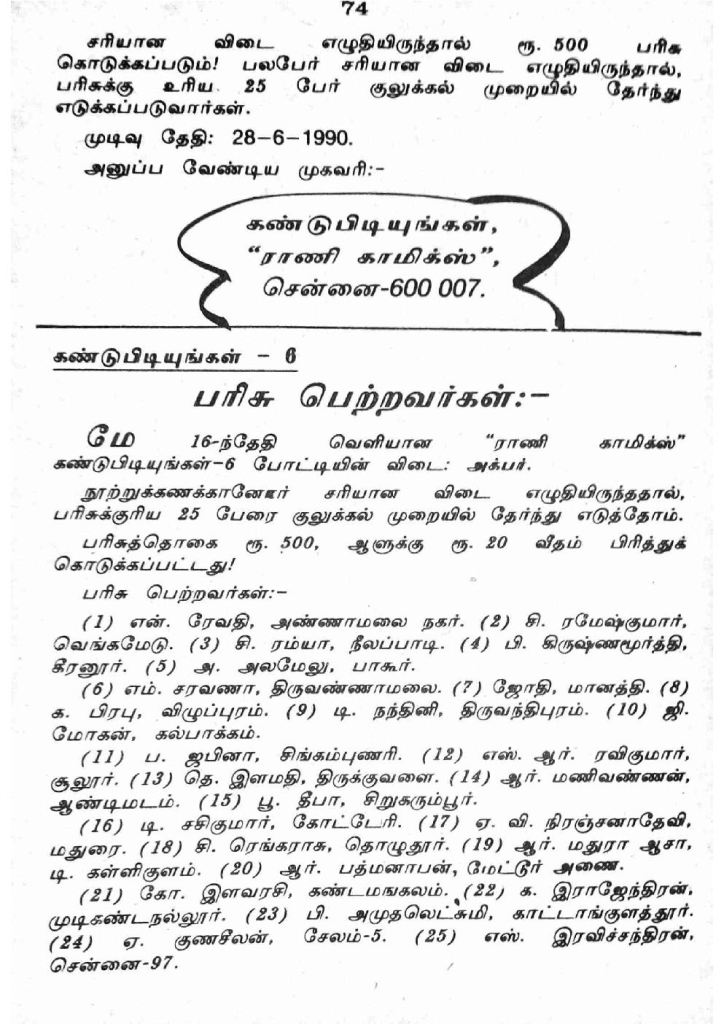 74
சரியான விடை எழுதியிருந்தால் ரூ. 500 பரிசு
கொடுக்கப்படும்! பலபேர் சரியான விடை எழுதியிருந்தால்,
பரிசுக்கு உரிய 25 பேர் குலுக்கல் முறையில் தேர்ந்து
எடுக்கப்படுவார்கள்.
முடிவு தேதி: 28-6-1990.
அனுப்ப வேண்டிய முகவரி:-
கண்டுபிடியுங்கள்,
“ராணி காமிக்ஸ்”,
சென்னை-600 007.
கண்டுபிடியுங்கள் - 6
பரிசு பெற்றவர்கள்:-
மே 16-ந்தேதி வெளியான “ராணி காமிக்ஸ்”
கண்டுபிடியுங்கள்-6 போட்டியின் விடை: அக்பர்.
நூற்றுக்கணக்கானோர் சரியான விடை எழுதியிருந்ததால்,
பரிசுக்குரிய 25 பேரை குலுக்கல் முறையில் தேர்ந்து எடுத்தோம்.
பரிசுத்தொகை ரூ. 500, ஆளுக்கு ரூ. 20 வீதம் பிரித்துக்
கொடுக்கப்பட்டது!
பரிசு பெற்றவர்கள்:-
(1) என். ரேவதி, அண்ணாமலை நகர். (2) சி. ரமேஷ்குமார்,
வெங்கமேடு. (3) சி. ரம்யா, நீலப்பாடி. (4) பி. கிருஷ்ணமூர்த்தி,
கீரனூர். (5) அ. அலமேலு, பாகூர்.
(6) எம். சரவணா, திருவண்ணாமலை. (7) ஜோதி, மானத்தி. (8)
க. பிரபு, விழுப்புரம். (9) டி. நந்தினி, திருவந்திபுரம். (10) ஜி.
மோகன், கல்பாக்கம்.
(11) ப. ஜபினா, சிங்கம்புணரி. (12) எஸ். ஆர். ரவிகுமார்,
சூலூர். (13) தெ. இளமதி, திருக்குவளை. (14) ஆர். மணிவண்ணன்,
ஆண்டிமடம். (15) பூ. தீபா, சிறுகரும்பூர்.
(16) டி. சசிகுமார், கோட்டேரி. (17) ஏ. வி. நிரஞ்சனாதேவி,
மதுரை. (18) சி. ரெங்கராசு, தொழுதூர். (19) ஆர். மதுரா ஆசா,
டி. கள்ளிகுளம். (20) ஆர். பத்மனாபன், மேட்டூர் அணை.
(21) கோ. இளவரசி, கண்டமங்கலம். (22) க. இராஜேந்திரன்,
முடிகண்டநல்லூர். (23) பி. அமுதலெட்சுமி, காட்டாங்குளத்தூர்.
(24) ஏ. குணசீலன், சேலம்-5. (25) எஸ். இரவிச்சந்திரன்,
சென்னை-97.